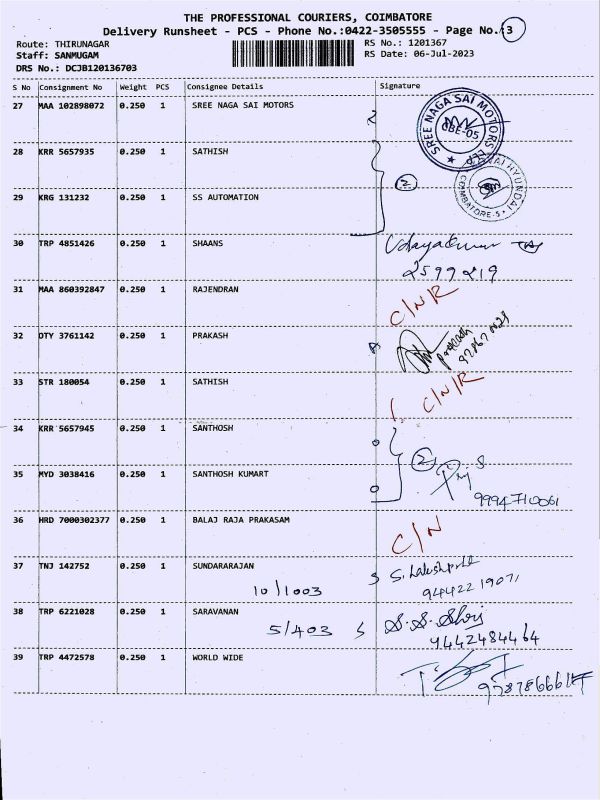 THE PROFESSIONAL COURIERS, COIMBATORE
Delivery Runsheet - PCS - Phone No.:0422-3505555 - Page No.:3
Route: THIRUNAGAR
RS No.: 1201367
Staff: SANMUGAM
RS Date: 06-Jul-2023
DRS No.: DCJB120136703
S No Consignment No Weight PCS Consignee Details Signature
27 MAA 102898072 0.250 1 SREE NAGA SAI MOTORS
SREE NAGA SAI MOTORS
CBE-05
28 KRR 5657935 0.250 1 SATHISH
2
HYUNDAI
COIMBATORE-5
29 KRG 131232 0.250 1 SS AUTOMATION
30 TRP 4851426 0.250 1 SHAANS
Udayakumar
2599219
31 MAA 860392847 0.250 1 RAJENDRAN
C/N/R
32 DTY 3761142 0.250 1 PRAKASH
Prakash
33 STR 180054 0.250 1 SATHISH
C/N/R
34 KRR 5657945 0.250 1 SANTHOSH
2
35 MYD 3038416 0.250 1 SANTHOSH KUMART
9994710061
36 HRD 7000302377 0.250 1 BALAJ RAJA PRAKASAM
C/N
37 TNJ 142752 0.250 1 SUNDARARAJAN
10/1003
9442219071
38 TRP 6221028 0.250 1 SARAVANAN
5/403 S
9442484464
39 TRP 4472578 0.250 1 WORLD WIDE